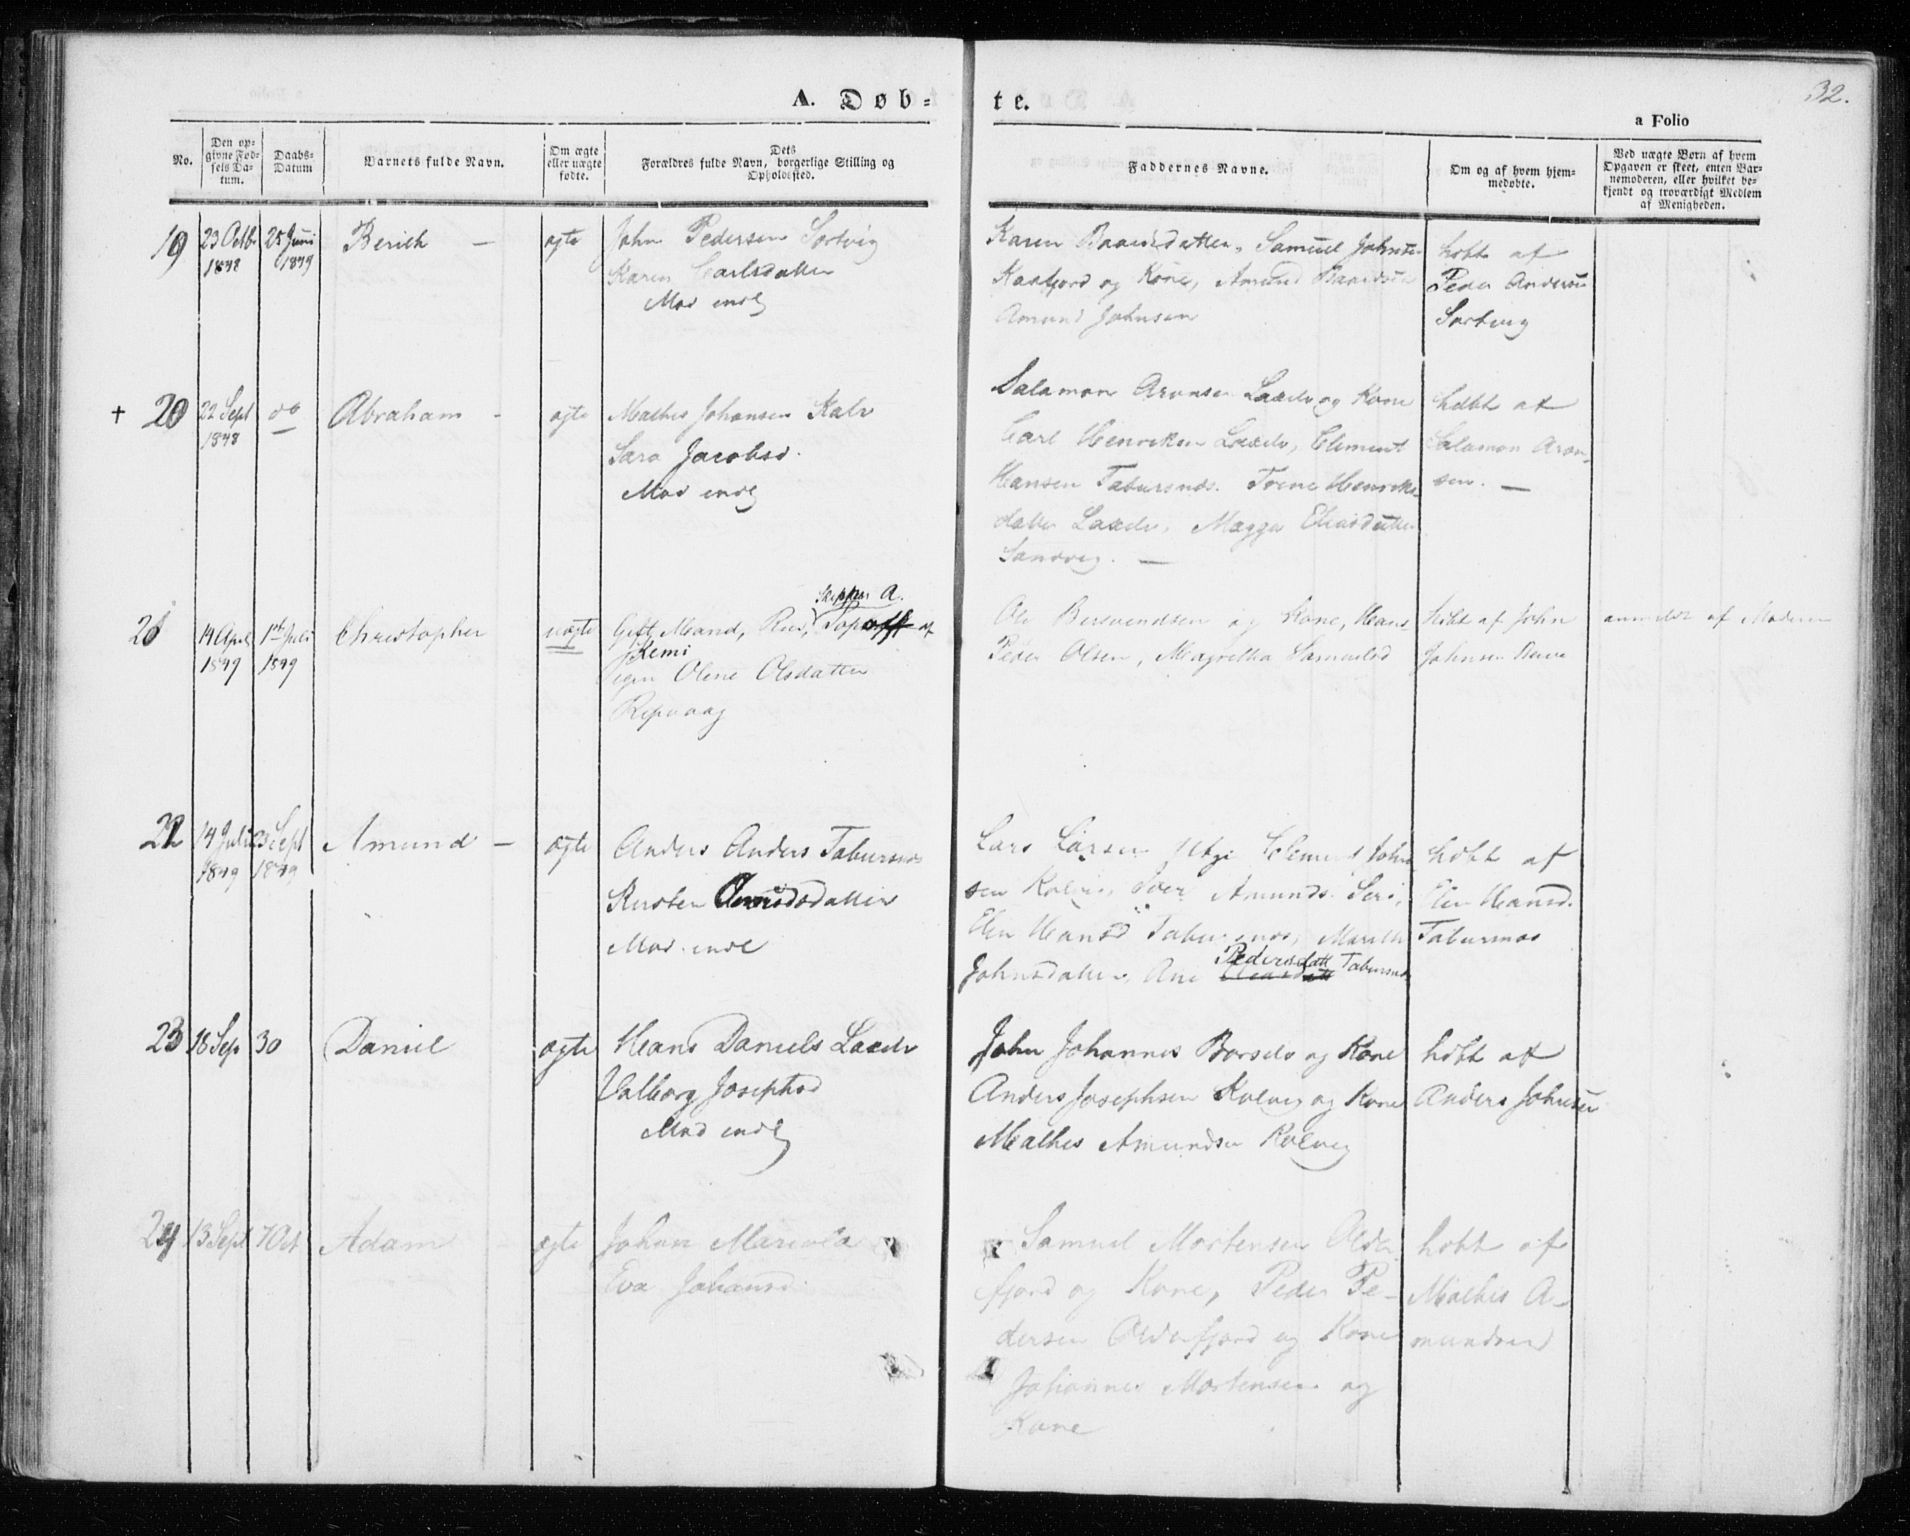 32.
A. Døb-
te.
a Folio
No.
Den op-
givne Fød-
sels Da-
tum.
Daabs-
Datum
Barnets fulde Navn.
Om ægte
eller uægte
fødte.
Dets
Forældres fulde Navn, borgerlige Stilling og
Opholdssted.
Faddernes Navne.
Om og af hvem hjem-
medøbte.
Ved uægte Børn af hvem
Opgaven er skeet, enten Bar-
nemoderen, eller hvilket be-
kjendt og troværdigt Medlem
af Menigheden.
19
23 Octbr
1848
25 Juni
1849
Berith -
ægte
John Pedersen Sortvig
Karen Carlsdatter
Mod
Karen Baardsdatter, Samuel Johnse
Kaafjord og Kone, Amund Baardsen
Amund Johnsen
hdbt af
Peder Andersen
Sortvig
+ 20
22 Sept
1848
do
Abraham -
ægte
Mathis Johansen
Sara Jacobsd.
Mod
Salamon Aronsen Laxelv og Kone
Carl Henriksen Laxelv, Clement
Hansen Tabursnds. Trine Henriks-
datter Laxelv, Magga Eliasdatter
Sandvig. —
hdbt af
Salamon Aron-
sen. —
21
14 April
1849
1st Juli
1849
Christopher
uægte
Skipper A.
Gift Mand, Rus, Popoff af
Kemi
Pigen Olene Olsdatter
Repvaag
Ole og Kone, Hans
Peder Olsen, Magretha Samuelsd
hdbt af John
Johnsen
anmeldt af Moderen
22
14 Juli
1849
23 Sept
1849
Amund -
ægte
Anders Anders Tabursnæs
Kirsten Amundsdatter
Mod
Lars Larsen Clement John
sen Kolvig, Amunds.
Elen Hansd Tabursnæs, Marith
Johnsdatter, Ane Pedersdatt Tabursnæs
hdbt af
Elen Hansd.
Tabursnæs
23
18 Sep
30
Daniel
ægte
Hans Daniels Laxelv
Valborg Josephsd
Mod
John Johannes Børselv og Kone
Anders Josephsen Kolvig og Kone
Mathis Amundsen Kolvig
hdbt af
Anders Johnsen
24
13 Sept
7 Oct
Adam
ægte
Johan
Eva Johansd.
Samuel Mortensen Olde
fjord og Kone, Peder Pe-
dersen Oldefjord og Kone
Johannes Mortensen og
Kone
hdbt af
Mathis A-
mundsen